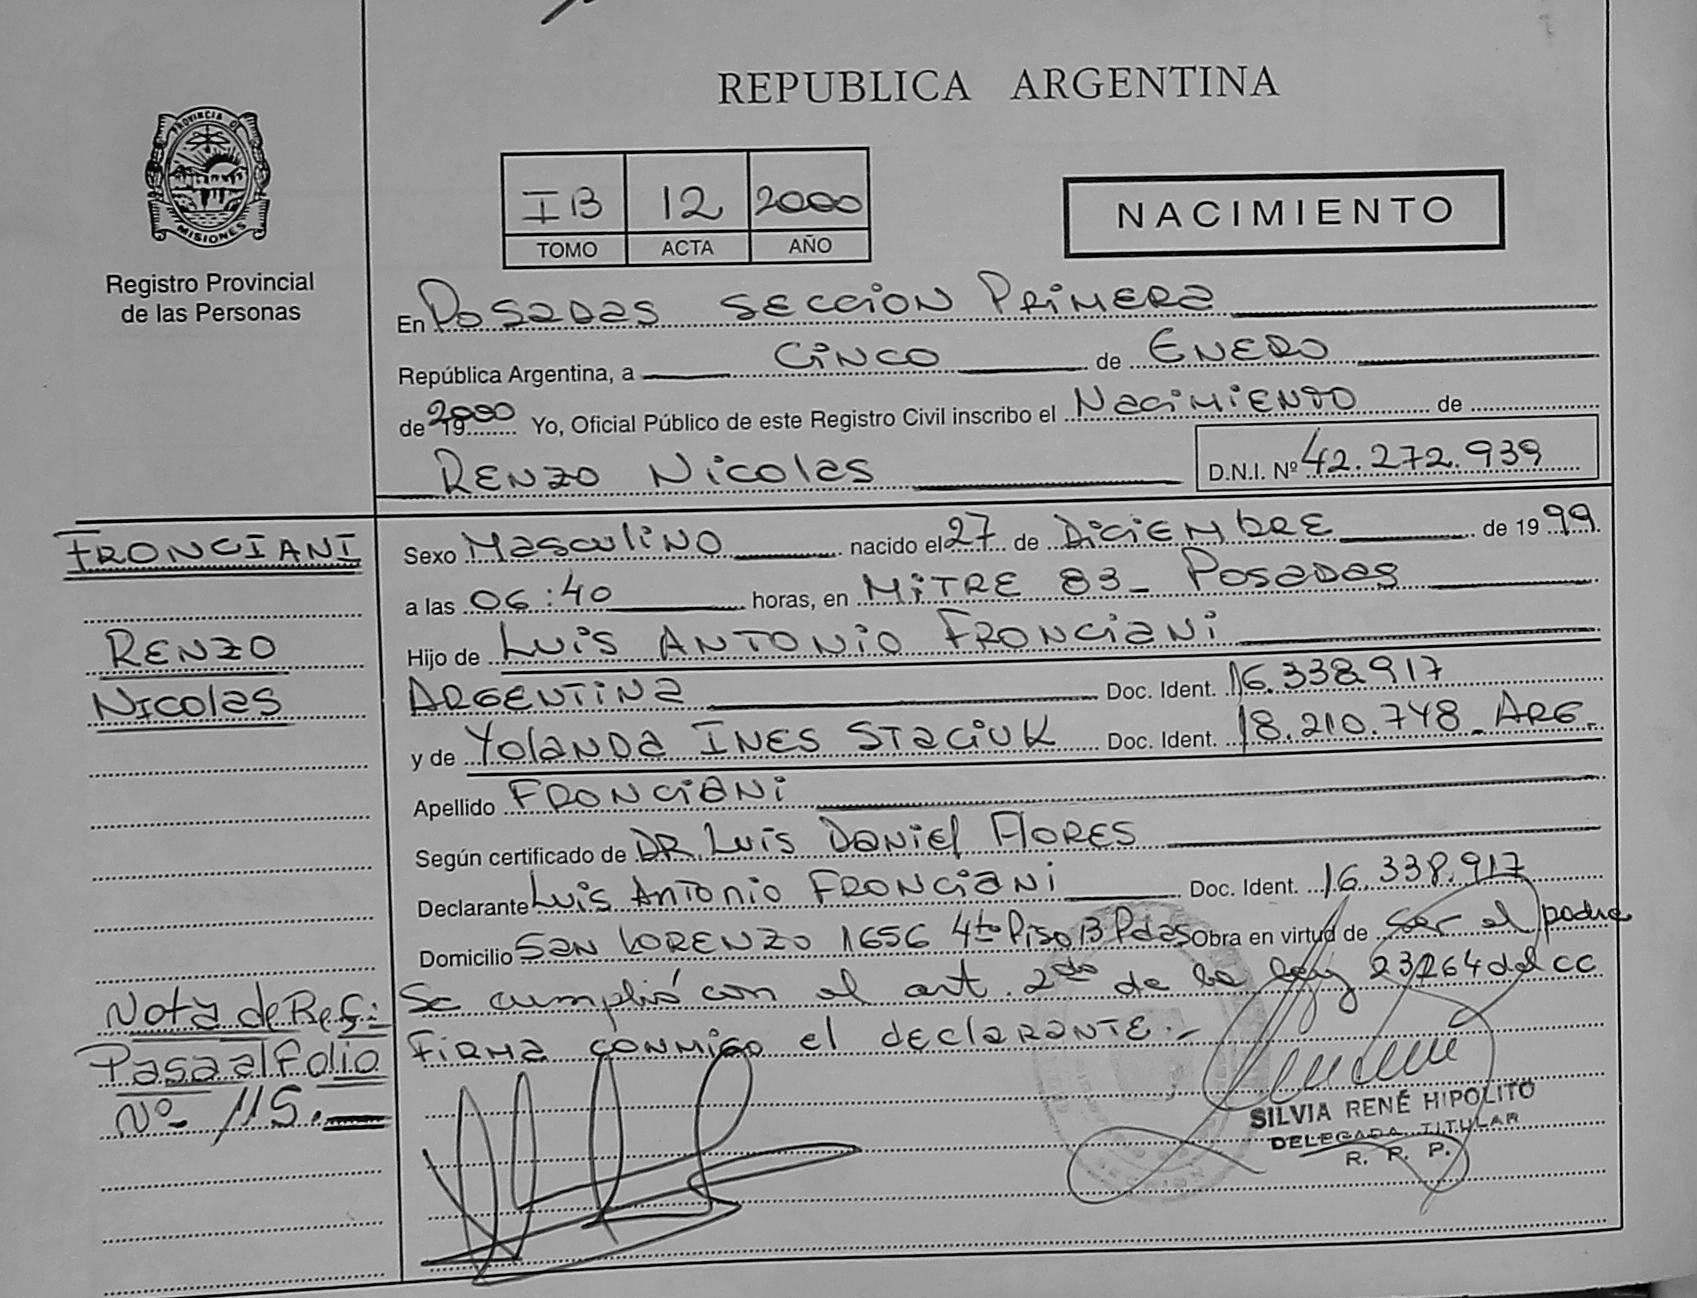 REPUBLICA ARGENTINA
PROVINCIA DE MISIONES
Registro Provincial
de las Personas
IB 12 2000
TOMO ACTA AÑO
NACIMIENTO
En Posadas Seccion Primera
República Argentina, a cinco de Enero
de 2000 Yo, Oficial Público de este Registro Civil inscribo el Nacimiento de
Renzo Nicolas D.N.I. Nº 42.272.939
FRONCIANI
RENZO
Nicolas
Sexo Masculino nacido el 27 de Diciembre de 1999.
a las 06:40 horas, en Mitre 83 - Posadas
Hijo de Luis Antonio Fronciani
Argentina Doc. Ident. 16.338.917
y de Yolanda Ines Staciuk Doc. Ident. 18.210.748 - ARG.
Apellido Fronciani
Según certificado de DR Luis Daniel Flores
Declarante Luis Antonio Fronciani Doc. Ident. 16.338.917
Domicilio San Lorenzo 1656 4to Piso B Pdas Obra en virtud de ser el padre
Se cumplió con el art. 2do de la ley 23264 del CC
Firma conmigo el declarante.-
Nota de Ref:
Pasa al folio
Nº 115.
SILVIA RENÉ HIPOLITO
DELEGADA TITULAR
R. P. P.